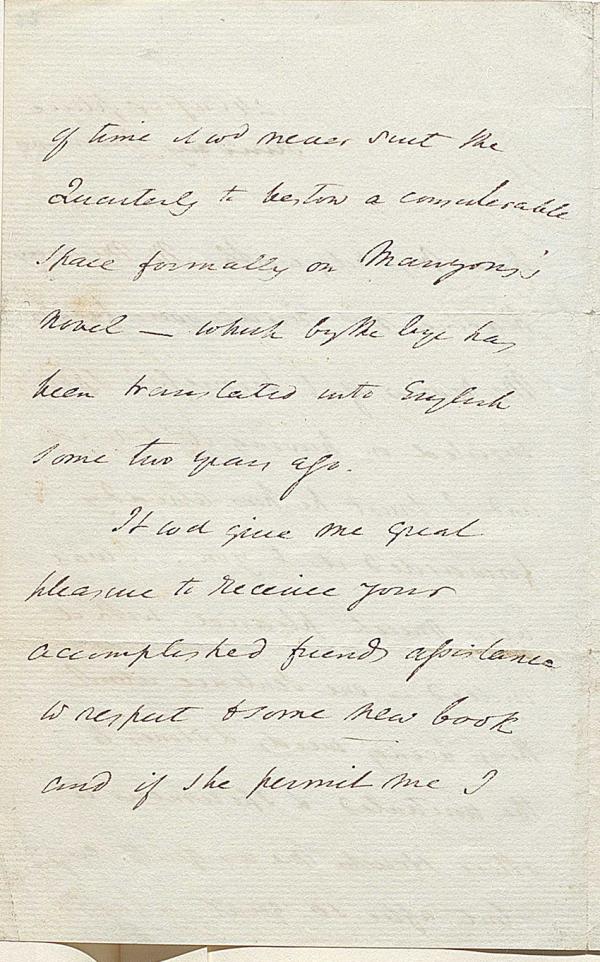 of time it wd never suit the
Quarterly to bestow a considerable
space formally on Manzoni's
novel — which by the bye has
been translated into English
some two years ago.
It wd give me great
pleasure to receive your
accomplished friends assistance
in respect to some new book
and if she permit me I